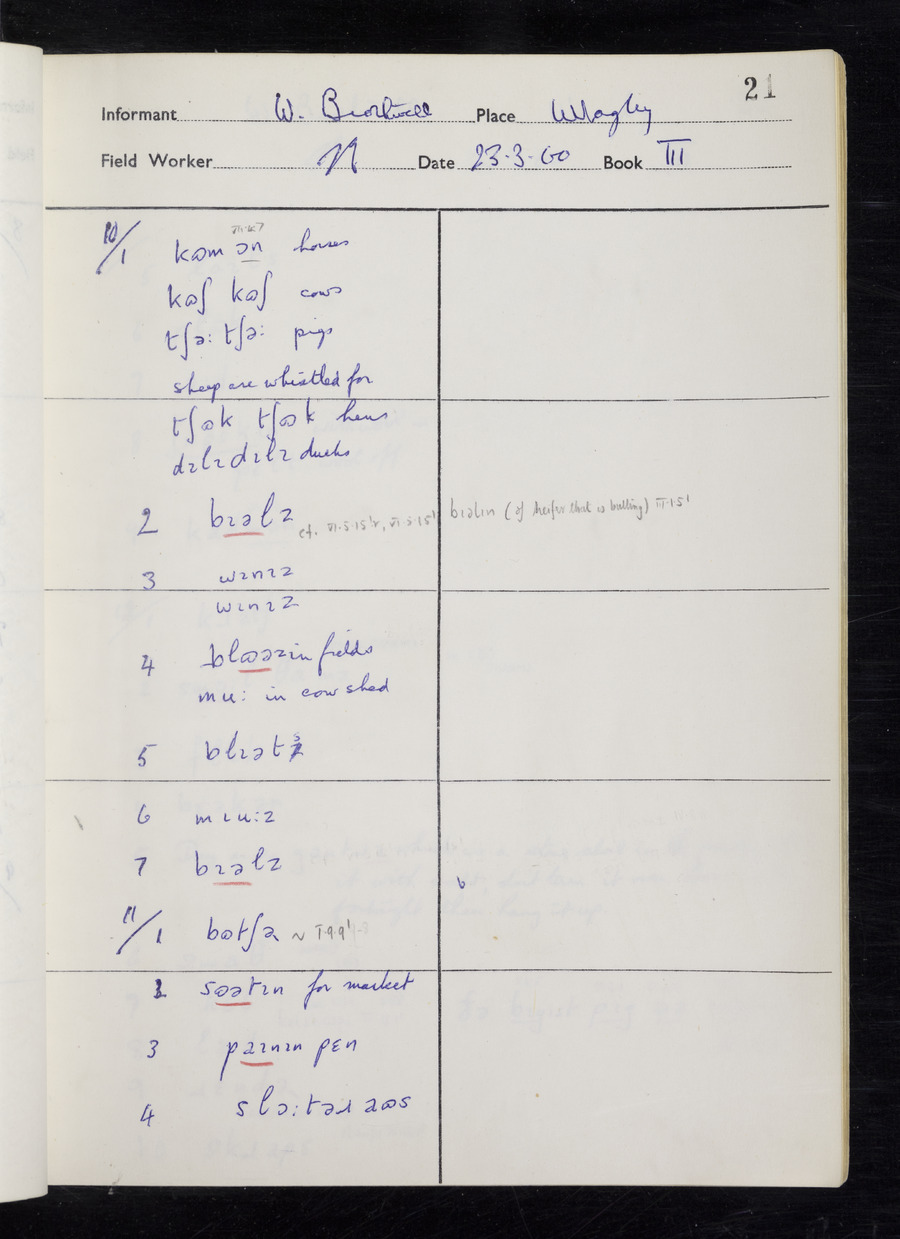 21
Informant W. Place Wragby
Field Worker N Date 23·3·60 Book III
10/1 kɷm ɔn horses
kɷʃ kɷʃ cows
tʃə: tʃə: pigs
sheep are whistled for
tʃɷk tʃɷk hens
dɪlɪ dɪlɪ ducks
2 bɪəlz cf. VI·5·15 bɪəlɪn (of heifer that is bulling) III·1·5¹
3 wɪnɪz
wɪnɪz
4 blɷəz in fields
mu: in cow shed
5 blɪəts
6 mɪu:z
7 bɪəlz
b
11/1 bɷtʃə ~ I·9·9¹
2 sɔətɪn for market
3 paɪnɪn pɛn
4 slɔ:təɹ aɷs